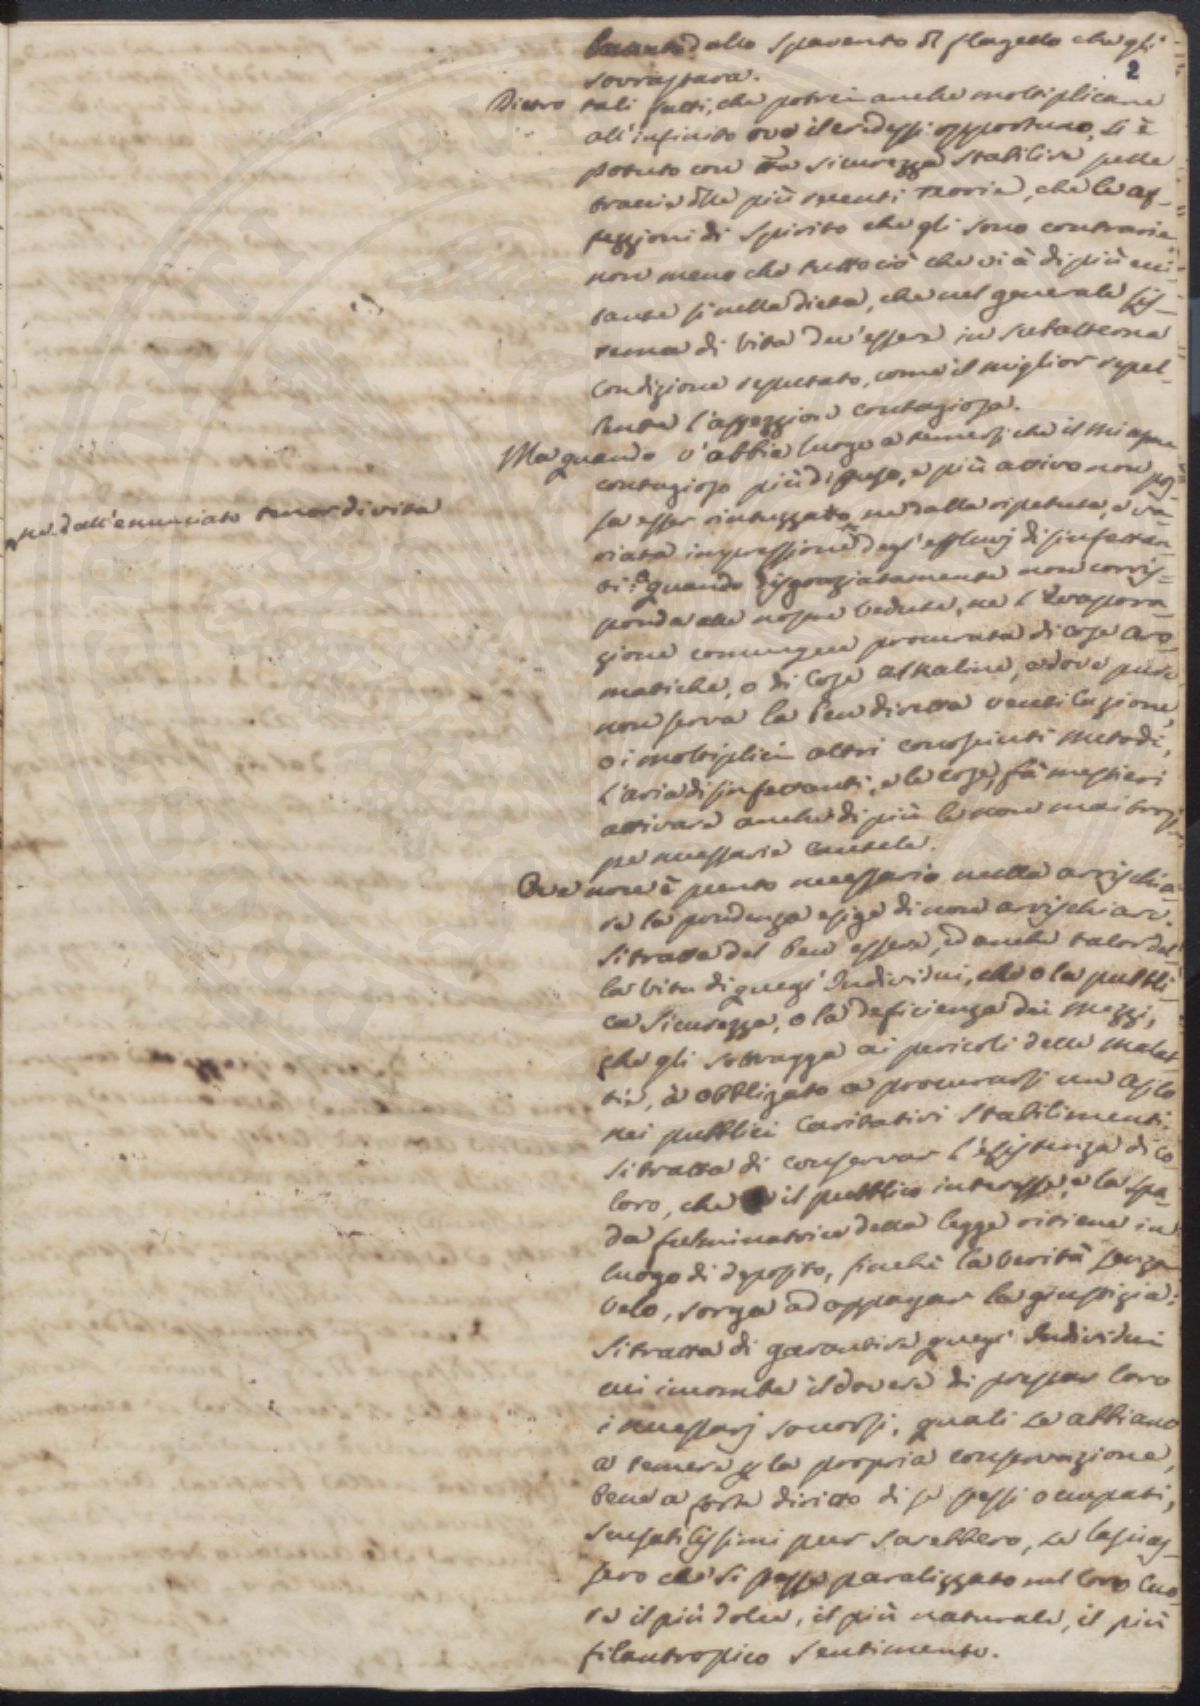 dallo spavento del flagello che gli
sovrastava.
2
Dietro tali fatti, che potrei anche moltiplicare
all'infinito ove il credessi opportuno, si è
potuto con sicurezza stabilire sulle
traccie delle più recenti teorie, che le af-
fezzioni di spirito che gli sono contrarie
non meno che tutto ciò che vi è di più ecci-
tante sì nella dieta, che nel generale sis-
tema di vita dev'essere in subalterna
condizione reputato, come il miglior repel-
lente l'affezzione contagiosa.
Ma quando v'abbia luogo a temersi che il miasma
contagioso più diffuso, e più attivo non pos-
sa esser rintuzzato, ne dalla ripetuta, e va-
riata impressione degl'effluvj disinfettan-
ti:
ne dall'enunciato tenor di vita
quando disgraziatamente non corris-
ponda alle nostre vedute, ne l'evapora-
zione comunque procurata di cose aro-
matiche, o di cose alkaline, e dove pure
non serva la ben diretta ventilazione
o i moltiplici altri conosciuti metodi,
l'aria disinfettanti, e le cose, fà mestieri
attivare anche di più le non mai trop-
pe necessarie cautele.
Ove non è punto necessario nulla arrischia-
re la prudenza esige di non arrischiarsi.
Si tratta del ben essere, ed anche talor del-
la vita di quegl'Individui, che o la pubbli-
ca sicurezza, o la deficienza dei mezzi,
che gli sottragga ai pericoli delle malat-
tie, à obbligato a procurarsi un asilo
nei pubblici caritativi stabilimenti.
Si tratta di conservar l'esistenza di co-
loro, che il pubblico interesse, e la spa-
da fulminatrice della legge ritiene in
luogo di deposito, finchè la verità senza
velo, sorga ad appagar la giustizia:
Si tratta di garantire quegl'Individui
cui incombe il dovere di prestar loro
i necessarj soccorsi, quali se abbiano
a temere per la propria conservazione,
bene a forte diritto di se stessi occupati,
scusabilissimi pur sarebbero, se lascias-
sero che si paralizzato nel loro cuo-
re il più dolce, il più naturale, il più
filantropico sentimento.